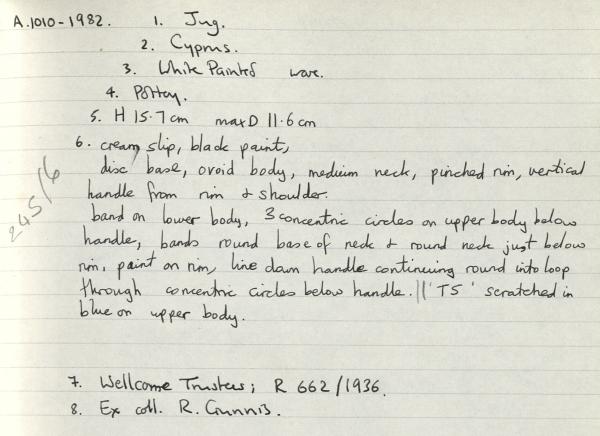 A.1010-1982. 1. Jug.
2. Cyprus.
3. White Painted ware.
4. Pottery.
5. H 15.7cm maxD 11.6cm
6. cream slip, black paint,
disc base, ovoid body, medium neck, pinched rim, vertical
handle from rim & shoulder.
band on lower body, 3 concentric circles on upper body below
handle, bands round base of neck & round neck just below
rim, paint on rim, line down handle continuing round into loop
through concentric circles below handle. || 'T5' scratched in
blue on upper body.
245/6
7. Wellcome Trustees; R 662/1936.
8. Ex coll. R. Gunnis.